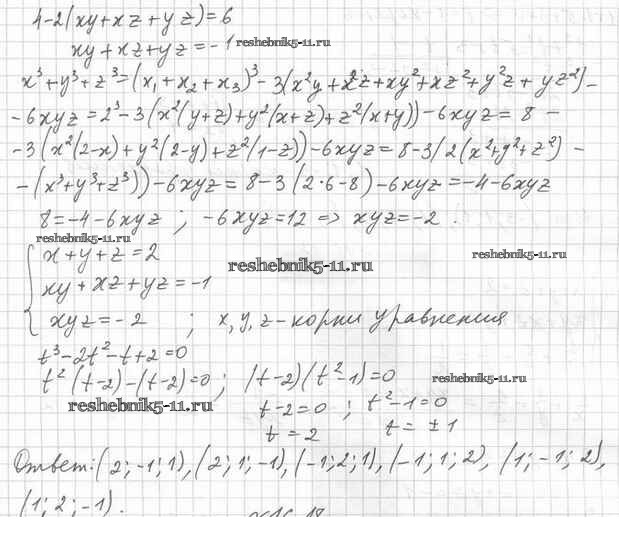 4-2(xy+xz+yz)=6
xy+xz+yz=-1 reshebnik5-11.ru
x³+y³+z³=(x₁+x₂+x₃)³-3(x²y+x²z+xy²+xz²+y²z+yz²)-
-6xyz=2³-3(x²(y+z)+y²(x+z)+z²(x+y))-6xyz=8-
-3(x²(2-x)+y²(2-y)+z²(1-z))-6xyz=8-3(2(x²+y²+z²)-
-(x³+y³+z³))-6xyz=8-3(2·6-8)-6xyz=-4-6xyz
8=-4-6xyz; -6xyz=12 => xyz=-2.
reshebnik5-11.ru
x+y+z=2 reshebnik5-11.ru
xy+xz+yz=-1 reshebnik5-11.ru
xyz=-2; x,y,z-корни уравнения
t³-2t²-t+2=0
t²(t-2)-(t-2)=0; (t-2)(t²-1)=0 reshebnik5-11.ru
reshebnik5-11.ru t-2=0; t²-1=0
t=2 t=±1
Ответ: (2;-1;1),(2;1;-1),(-1;2;1),(-1;1;2),(1;-1;2),
(1;2;-1).